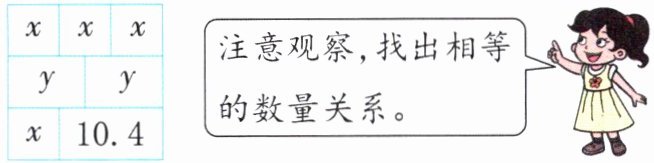 x x x
y y
x 10.4
注意观察,找出相等
的数量关系。